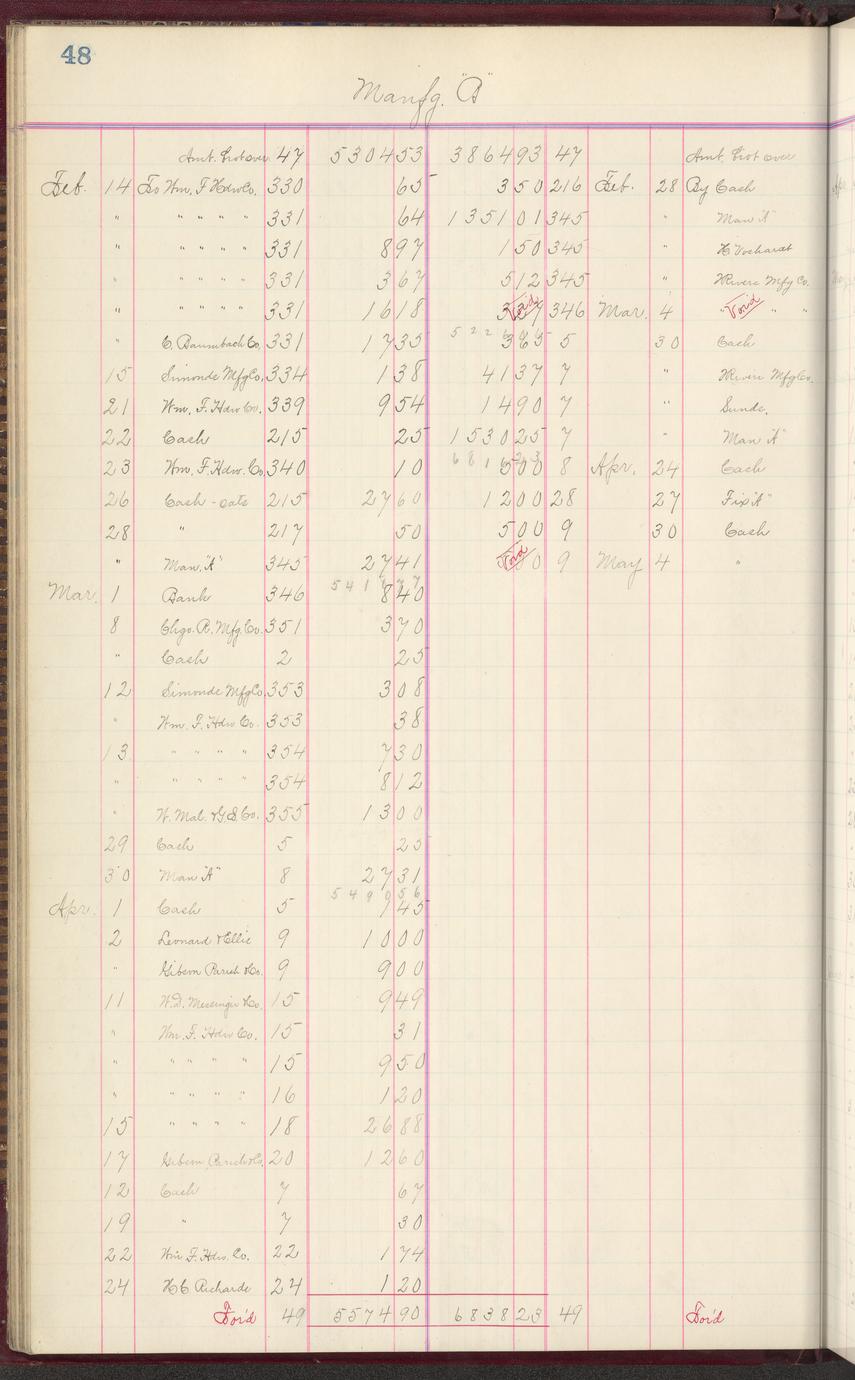 48
Manfg. "A"
Amt. Brot over 47 5304 53 3864 93 47 Amt. Brot over
Feb. 14 To Wm. F. Hdw Co. 330 65 3 50 216 Feb. 28 By Cash
" " " " " 331 64 1351 01 345 " Man "A"
" " " " " 331 8 97 1 50 345 "
" " " " " 331 3 67 5 12 345 " Rivers Mfg Co.
" " " " " 331 16 18 Void 346 Mar. 4 " Void " "
" C. Baumbach Co. 331 17 35 3 65 5 30 Cash
15 Simonds Mfg Co. 334 1 38 41 37 7 " Rivers Mfg Co.
21 Wm. F. Hdw Co. 339 9 54 14 90 7 " Sunds.
22 Cash 215 25 1530 25 7 " Man "A"
23 Wm. F. Hdw. Co. 340 10 5 00 8 Apr. 24 Cash
26 Cash - oats 215 27 60 12 00 28 27 Fix "A"
28 " 217 50 5 00 9 30 Cash
" Man. "A" 345 27 41 Void 9 May 4 "
5 4 1 7 7 7
Mar. 1 Bank 346 8 40
8 Chgo. R. Mfg. Co. 351 3 70
" Cash 2 25
12 Simonds Mfg Co. 353 3 08
" Wm. F. Hdw Co. 353 38
13 " " " " 354 7 30
" " " " " 354 8 12
" W. Mal. & G. S. Co. 355 13 00
29 Cash 5 25
30 Man "A" 8 27 31
5 4 9 9 5 6
Apr. 1 Cash 5 1 45
2 Leonard & Ellis 9 10 00
" Gibson Parish & Co. 9 9 00
11 W. D. Messinger & Co. 15 9 49
" Wm. F. Hdw Co. 15 31
" " " " " 15 9 50
" " " " " 16 1 20
15 " " " " 18 26 88
17 Gibson, Parish & Co. 20 12 60
12 Cash 7 67
19 " 7 30
22 Wm F. Hdw. Co. 22 1 74
24 H C Richards 24 1 20
For'd 49 5574 90 6838 23 49 For'd